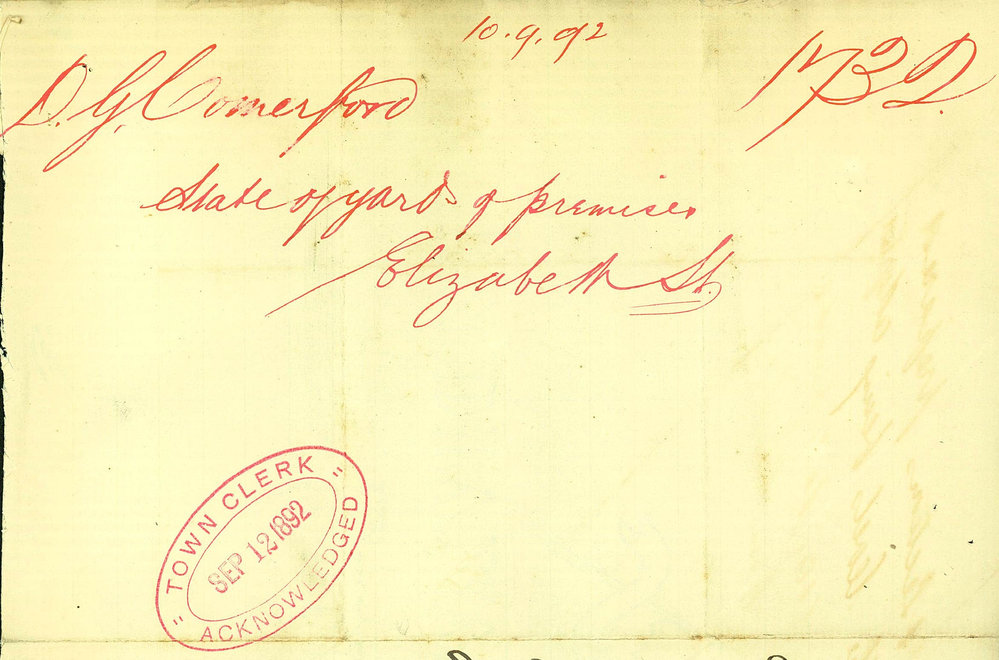 10.9.92
D. G. Comerford
1732
State of yard of premises
Elizabeth St.
"TOWN CLERK"
SEP 12 1892
ACKNOWLEDGED